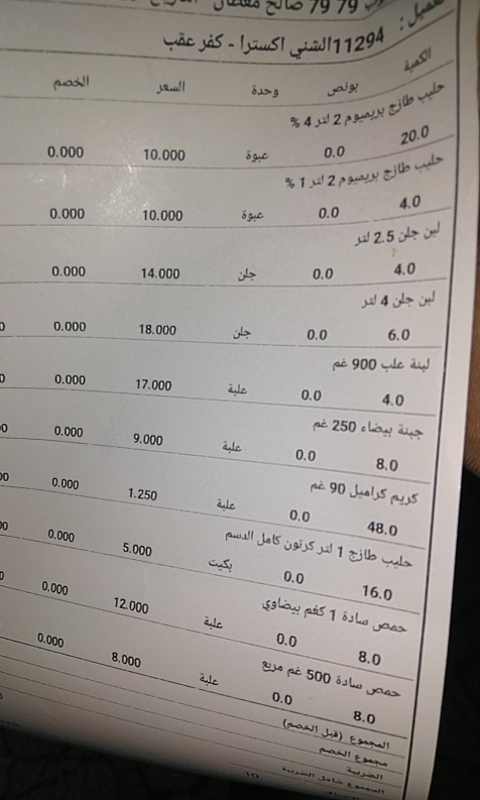 79 79 صالح معطان
عميل :
11294الشني اكسترا - كفر عقب
الكمية بونص وحدة السعر الخصم
حليب طازج بريميوم 2 لتر 4 %
20.0 0.0 عبوة 10.000 0.000
حليب طازج بريميوم 2 لتر 1 %
4.0 0.0 عبوة 10.000 0.000
لبن جلن 2.5 لتر
4.0 0.0 جلن 14.000 0.000
لبن جلن 4 لتر
6.0 0.0 جلن 18.000 0.000
لبنة علب 900 غم
4.0 0.0 علبة 17.000 0.000
جبنة بيضاء 250 غم
8.0 0.0 علبة 9.000 0.000
كريم كراميل 90 غم
48.0 0.0 علبة 1.250 0.000
حليب طازج 1 لتر كرتون كامل الدسم
16.0 0.0 بكيت 5.000 0.000
حمص سادة 1 كغم بيضاوي
8.0 0.0 علبة 12.000 0.000
حمص سادة 500 غم مربع
8.0 0.0 علبة 8.000 0.000
المجموع (قبل الخصم)
مجموع الخصم
الضريبة
المجموع شامل الضريبة